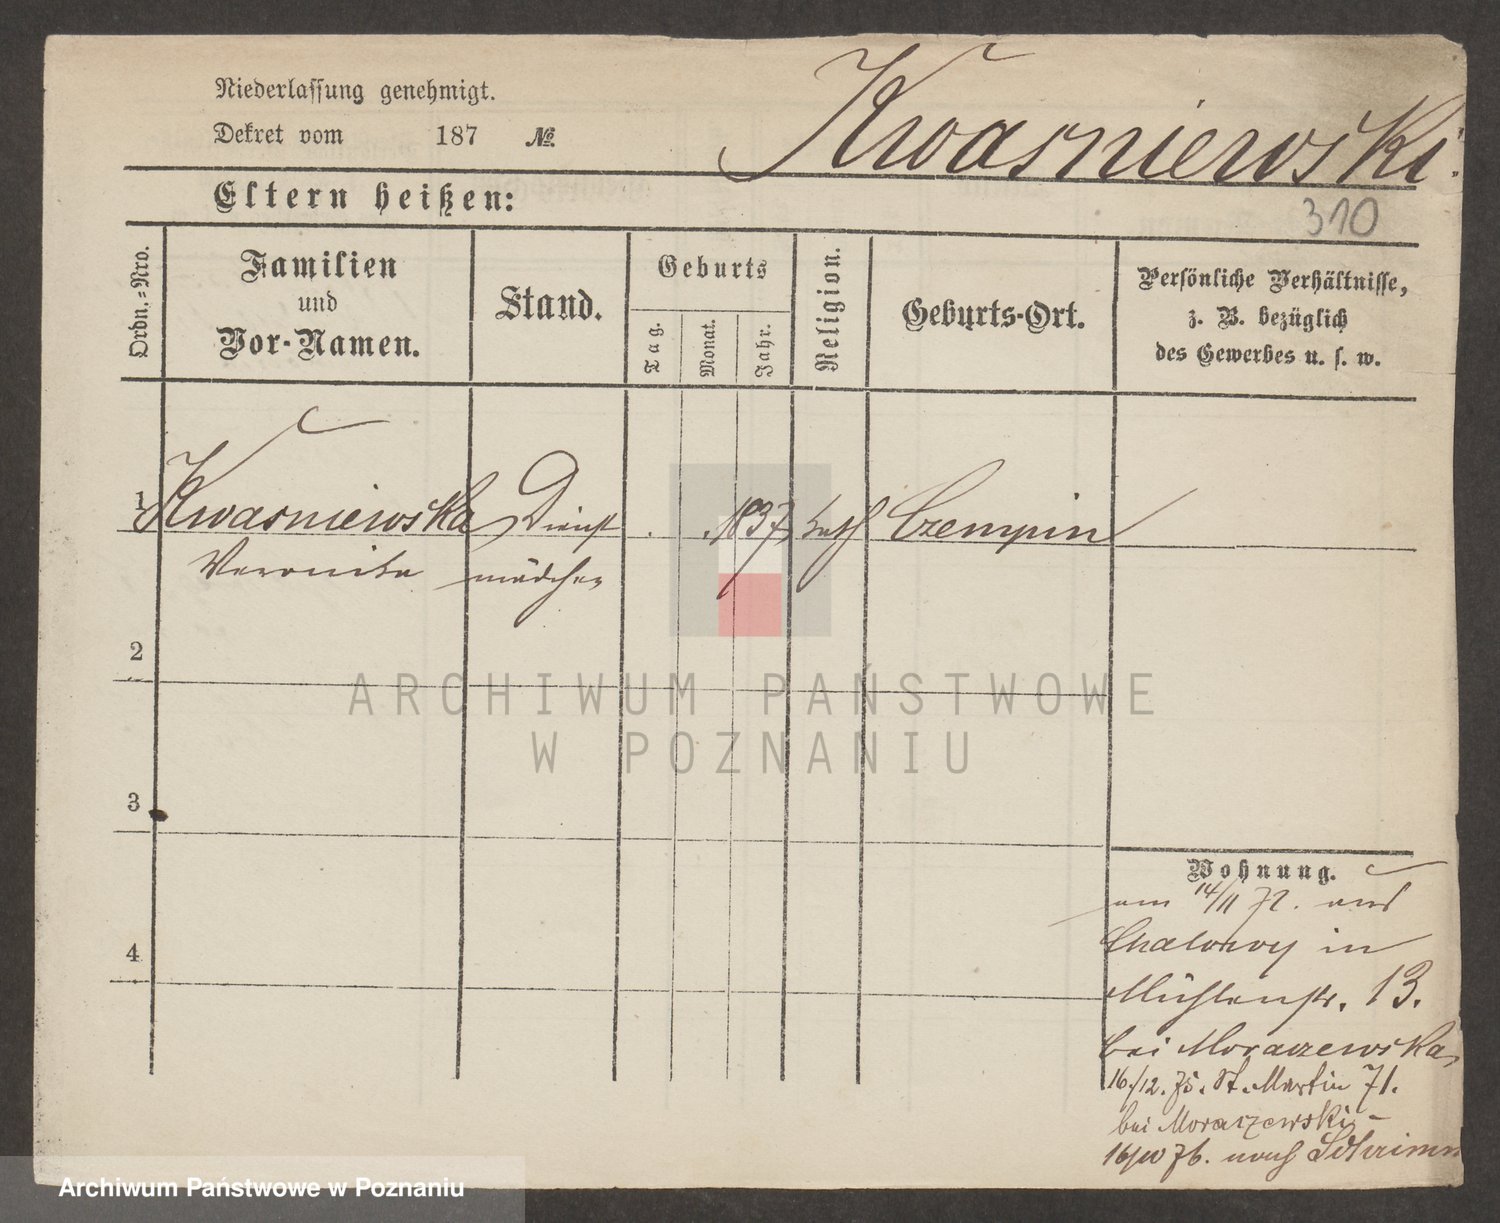 Niederlassung genehmigt.
Dekret vom 187 №.
Kwasniewski.
Eltern heißen:
310
Ordn.=Nro.
Familien
und
Vor-Namen.
Stand.
Geburts
Tag.
Monat.
Jahr.
Religion.
Geburts-Ort.
Persönliche Verhältnisse,
z. B. bezüglich
des Gewerbes u. s. w.
1 Kwasniewska Dienst 1837 kath Czempin
Veronika mädchen
2
ARCHIWUM PAŃSTWOWE
W POZNANIU
3
4
Wohnung.
am 14/11 72. aus
in
Mühlenstr. 13.
bei Moraczewska
16/12. 75. St. Martin 71.
bei Moraczewski
16/10 76. nach Schrimm
Archiwum Państwowe w Poznaniu